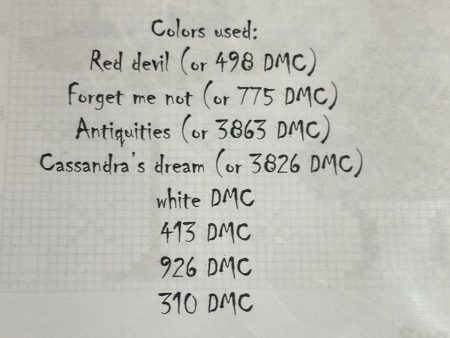 Colors used:
Red devil (or 498 DMC)
Forget me not (or 775 DMC)
Antiquities (or 3863 DMC)
Cassandra's dream (or 3826 DMC)
white DMC
413 DMC
926 DMC
310 DMC